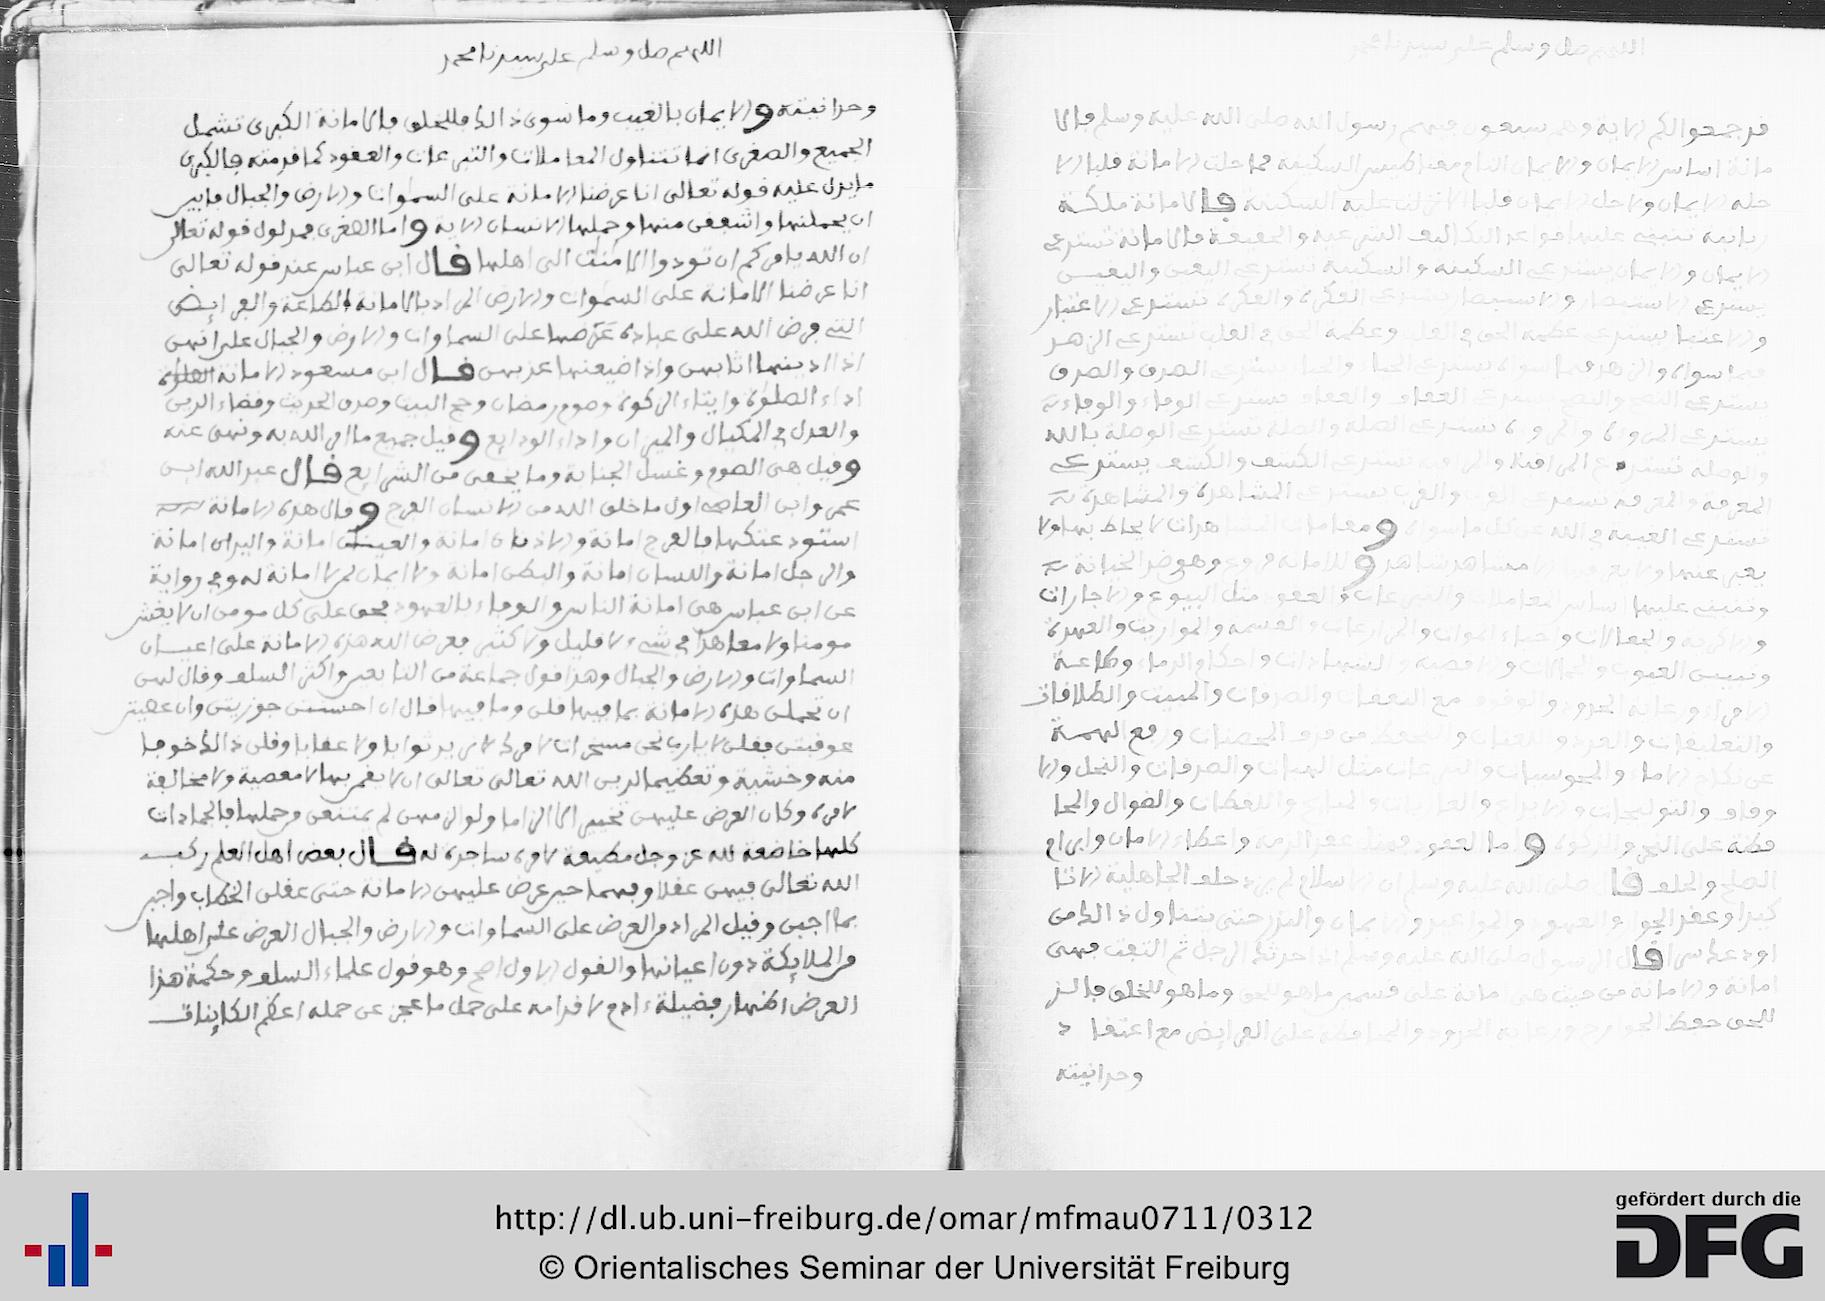 اللهم صل وسلم على سيدنا محمد
فرجعوا الكم الاية وهم سبعون منهم رسول الله صلى الله عليه وسلم فالا
مانة اساس الايمان والايمان التاج السكينة فما حلت الامانة قلبا الا
حله الايمان ولا حل الايمان قلبا الا انزلت عليه السكينة فالامانة ملكة
ربانية تنبني عليها قواعد التكاليف الشرعية والحقيقة فالامانة تسترعى
الايمان والايمان يسترعى السكينة والسكينة تسترعى اليقين واليقين
يسترعى الاستبصار والاستبصار يسترعى الفكرة والفكرة تسترعى الاعتبار
والاعتبار يسترعى عظمة الحق في القلب وعظمة الحق في القلب تسترعى الزهد
فيما سواه والزهد فيما سواه يسترعى الحياء والحياء يسترعى الصدق والصدق
يسترعى النصح والنصح يسترعى العفاف والعفاف يسترعى الوفاء والوفاء
يسترعى المروءة والمروءة تسترعى الصلة والصلة تسترعى الوصلة بالله
والوصلة تسترعى المراقبة والمراقبة تسترعى الكشف والكشف يسترعى
المعرفة والمعرفة تسترعى القرب والقرب يسترعى المشاهدة والمشاهدة
تسترعى الغيبة في الله عن كل ما سواه ومقامات المشاهدات لا يحاط بها ولا
يعبر عنها ولا يعرفها الا مشاهد شاهد وللامانة فروع وهو ضد الخيانة
وتنبني عليها اساس المعاملات والتبرعات والعقود مثل البيوع والاجارات
والاكرية والجعالات واحياء الموات والمزارعات والقسمة والمواريث والعهدة
وتبيين العيوب والاقضية والشهادات واحكام الدماء وطاعة
الامراء ورعاية الحدود والوقوف مع النفقات والصدقات والمبيت والطلاقات
والتعليقات والعدد واللعان والتحفظ من قذف المحصنات ورفع التهمة
عن نكاح الاماء والمجوسيات والتبرعات مثل الهبات والصدقات والنحل والا
وقاف والتوليجات واللقطات والضوال والمحا
فظة على النحر والزكوة واما العقود فمثل عقد الذمة واعطاء الامان وابرام
الصلح والحلف قال صلى الله عليه وسلم ان الاسلام لم يزد حلف الجاهلية الا تا
كيدا وعقد الجوار والعهود والمواعيد والايمان والنذر حتى يتناول ذالك من
اودعك سرا قال الرسول صلى الله عليه وسلم اذا حدثك الرجل ثم التفت فهى
امانة والامانة من حيث هى امانة على قسمين ما هو للحق وما هو للخلق فالذى
للحق حفظ الجوارح ورعاية الحدود والمحافظة على الفرايض مع اعتقاد
وحدانيته
اللهم صل وسلم على سيدنا محمد
وحدانيته والايمان بالغيب وما سوى ذالك فللخلق فالامانة الكبرى تشمل
الجميع والصغرى انما تتناول المعاملات والتبرعات والعقود كما قدمته فالكبرى
ما يدل عليه قوله تعالى انا عرضنا الامانة على السموات والارض والجبال فابين
ان يحملنها واشفقن منها وحملها الانسان الاية واما الصغرى فمدلول قوله تعالى
ان الله يامركم ان تودوا الامنت الى اهلها قال ابن عباس عند قوله تعالى
انا عرضنا الامانة على السموات والارض المراد بالامانة الطاعة والفرايض
التى فرض الله على عباده عرضها على السماوات والارض والجبال على انهن
اذا ادينها اثابهن واذا ضيعنها عذبهن قال ابن مسعود الامانة الصلوة
اداء الصلوة وايتاء الزكوة وصوم رمضان وحج البيت وصدق الحديث وقضاء الدين
والعدل في المكيال والميزان واداء الودايع وقيل جميع ما امر الله به ونهى عنه
وقيل هى الصوم وغسل الجنابة وما يخفى من الشرايع قال عبد الله ابن
عمرو ابن العاصى اول ما خلق الله من الانسان الفرج وقال هذه الامانة
استودعتكها فالفرج امانة والاذنان امانة والعينان امانة واليدان امانة
والرجل امانة واللسان امانة والبطن امانة ولا ايمان لمن لا امانة له وفي رواية
عن ابن عباس هى امانة الناس والوفاء بالعهود فحق على كل مومن ان لا يغش
مومنا ولا معاهدا في شىء لا قليل ولا كثير فعرض الله هذه الامانة على اعيان
السماوات والارض والجبال وهذا قول جماعة من التابعين واكثر السلف وقال لهن
ان تحملن هذه الامانة بما فيها قلن وما فيها قال ان احسنتن جوزيتن وان عصيتن
عوقبتن فقلن لا يارب نحن مسخرات لامرك لا نريد ثوابا ولا عقابا وقلن ذالك خوفا
منه وخشية وتعظيما لدين الله تعالى تعالى ان لا يقمن بها لا معصية ولا مخالفة
لامره وكان العرض عليهن تخييرا لا الزاما ولو الزمهن لم يمتنعن من حملها فالجمادات
كلها خاضعة لله عز وجل مطيعة لامره ساجدة له قال بعض اهل العلم ركب
الله تعالى فيهن عقلا وفهما حين عرض عليهن الامانة حتى عقلن الخطاب واجبن
بما اجبن وقيل المراد من العرض على السماوات والارض والجبال العرض على اهلها
من الملايكة دون اعيانها والقول الاول اصح وهو قول علماء السلف وحكمة هذا
العرض اظهار فضيلة ءادم لاقدامه على حمل ما عجز عن حمله اعظم الكاينات
http://dl.ub.uni-freiburg.de/omar/mfmau0711/0312
© Orientalisches Seminar der Universität Freiburg
gefördert durch die
DFG